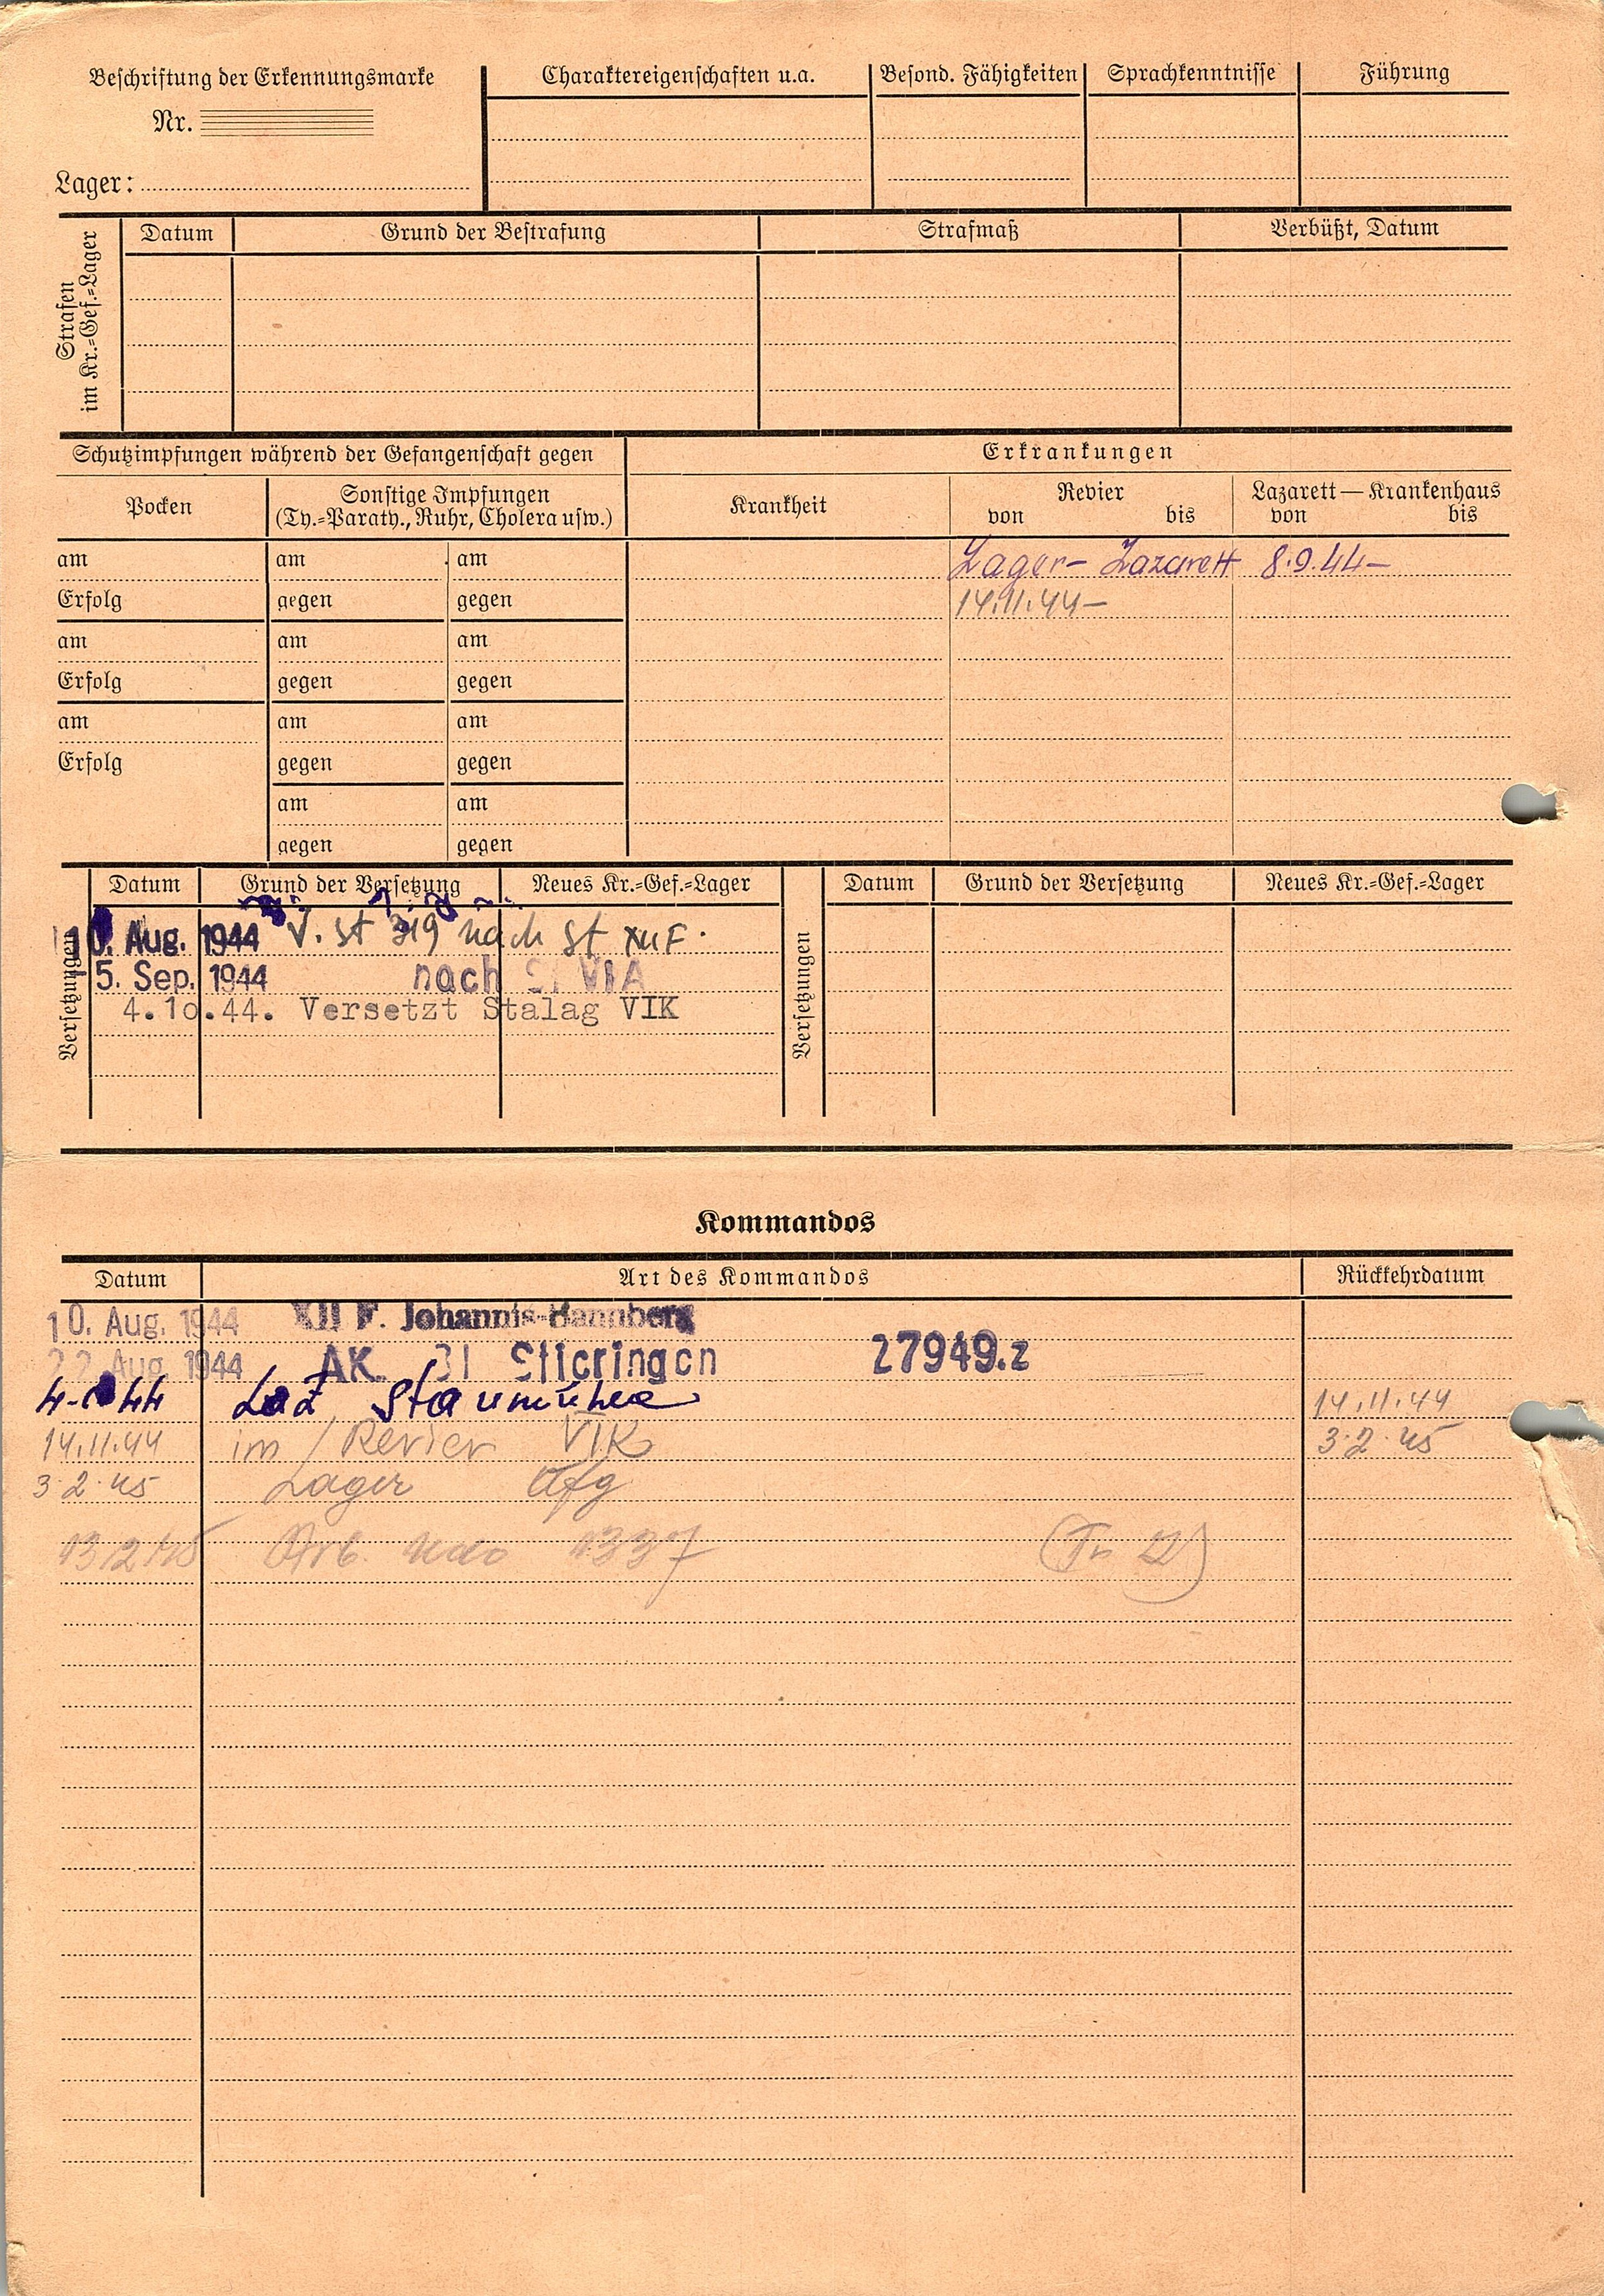 Beschriftung der Erkennungsmarke
Nr.
Lager:
Charaktereigenschaften u.a.
Besond. Fähigkeiten
Sprachkenntnisse
Führung
Strafen
im Kr.=Gef.=Lager
Datum
Grund der Bestrafung
Strafmaß
Verbüßt, Datum
Schutzimpfungen während der Gefangenschaft gegen
Erkrankungen
Pocken
Sonstige Impfungen
(Ty.=Paraty., Ruhr, Cholera usw.)
Krankheit
Revier
von bis
Lazarett — Krankenhaus
von bis
am am am Lager- Lazarett 8.9.44-
Erfolg gegen gegen 14.11.44-
am am am
Erfolg gegen gegen
am am am
Erfolg gegen gegen
am am
gegen gegen
Versetzungen
Datum Grund der Versetzung Neues Kr.=Gef.=Lager
10. Aug. 1944 V. St 319 nach St XII F.
5. Sep. 1944 nach St VIA
4.10.44. Versetzt Stalag VIK
Versetzungen
Datum Grund der Versetzung Neues Kr.=Gef.=Lager
Kommandos
Datum Art des Kommandos Rückkehrdatum
10. Aug. 1944 XII F. Johannis-Bannberg
22. Aug. 1944 AK. 31 Stieringen 27949.z
44 Laz Staumühle 14.11.44
14.11.44 im Revier VIK 3.2.45
3.2.45 Lager
13.2.45 Arb. Kdo 1337